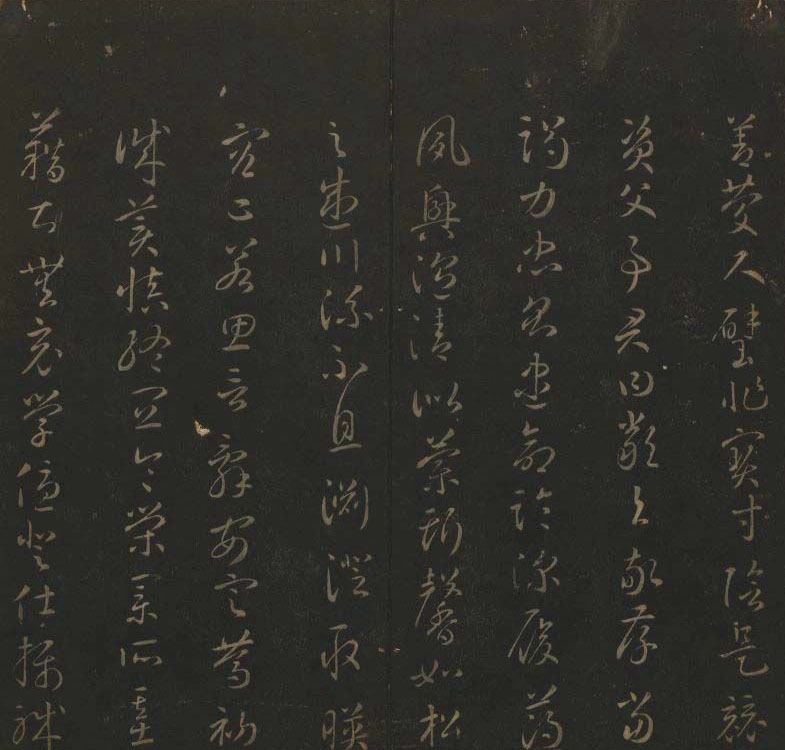 善慶尺璧非寶寸陰是競
資父事君曰嚴與敬孝當
竭力忠則盡命臨深履薄
夙興溫清似蘭斯馨如松
之盛川流不息淵澄取暎
容止若思言辭安定篤初
誠美慎終宜令榮業所基
藉甚無竟學優登仕攝職